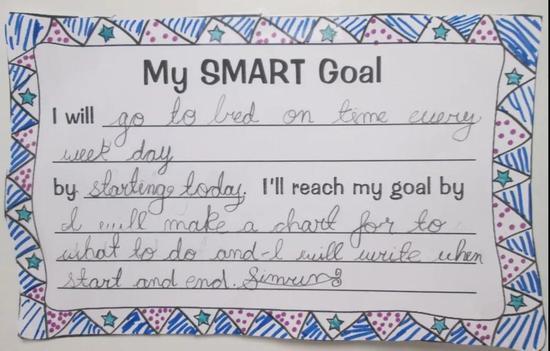 My SMART Goal
I will go to bed on time every
week day
by startinge today. I'll reach my goal by
I will make a chart for to
what to do and I will write when
start and end. Simrun